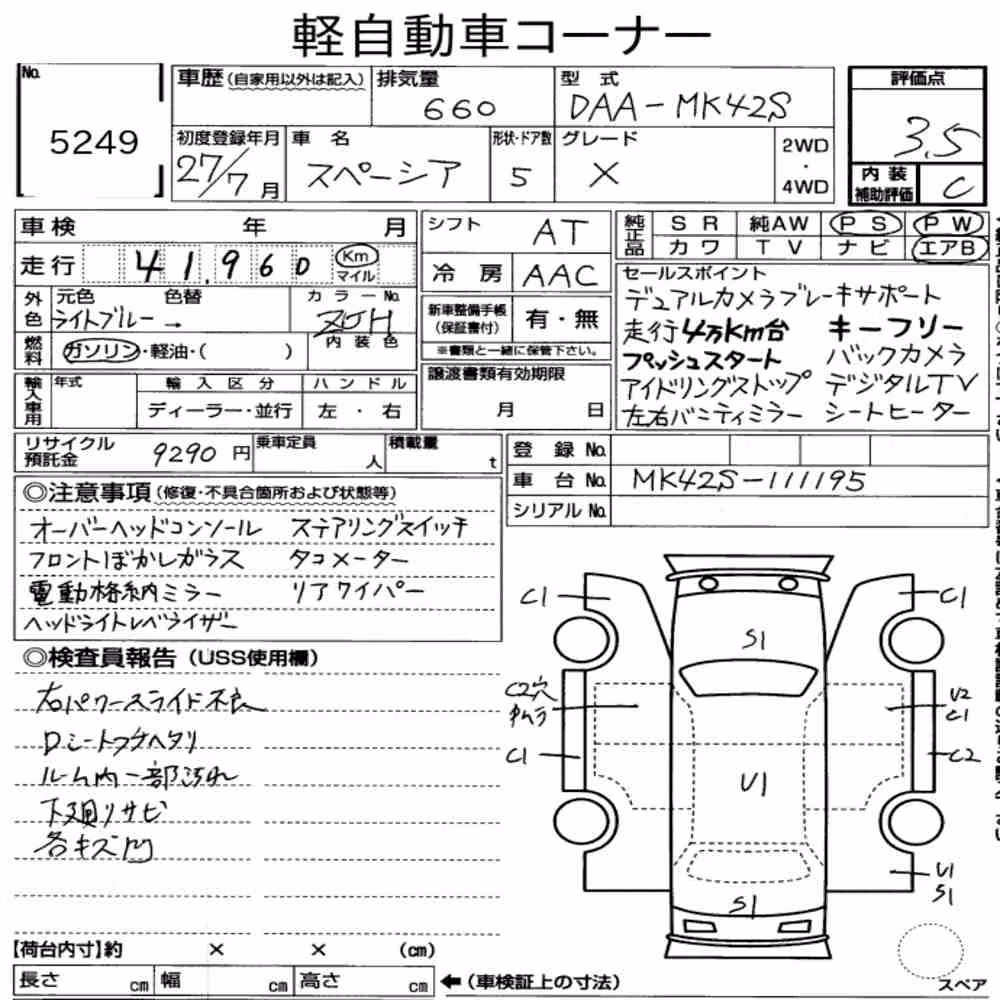 軽自動車コーナー
No. 5249
車歴(自家用以外は記入) 排気量 660 型式 DAA-MK42S 評価点 3.5
初度登録年月 27/7月 車名 スペーシア 形状・ドア数 5 グレード X 2WD・4WD 内装補助評価 C
車検 年 月 シフト AT 純正品 SR 純AW PS PW
カワ TV ナビ エアB
走行 41,960 Km マイル 冷房 AAC
セールスポイント
デュアルカメラブレーキサポート
走行4万Km台 キーフリー
プッシュスタート バックカメラ
アイドリングストップ デジタルTV
左右バニティミラー シートヒーター
外色 元色 色替 カラーNo.
ライトブルー → ZJH
内装色
新車整備手帳(保証書付) 有・無
※書類と一緒に保管下さい。
燃料 ガソリン・軽油・( )
輸入車用 年式 輸入区分 ハンドル
ディーラー・並行 左・右
譲渡書類有効期限
月 日
リサイクル預託金 9290円 乗車定員 人 積載量 t
登録No.
車台No. MK42S-111195
シリアルNo.
◎注意事項(修復・不具合箇所および状態等)
オーバーヘッドコンソール ステアリングスイッチ
フロントぼかしガラス タコメーター
電動格納ミラー リアワイパー
ヘッドライトレベライザー
◎検査員報告(USS使用欄)
右パワースライド不良
Dシートフケヘタリ
ルーム内一部汚れ
下廻りサビ
各キズ凹
C1 C1
S1
C2穴 U2
中ムラ C1
C1 C2
U1
U1
S1
S1
【荷台内寸】約 × × (cm)
長さ cm 幅 cm 高さ cm ←(車検証上の寸法)
スペア